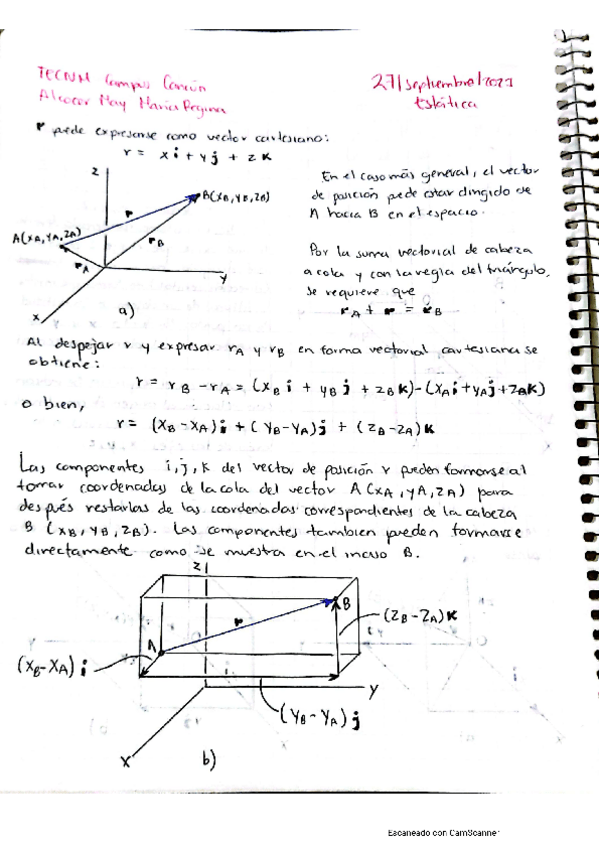 TECNM Campus Cancún
Alcocer May María Regina
27/septiembre/2021
Estática
r puede expresarse como vector cartesiano:
r = xi + yj + zk
z
B(XB, YB, ZB)
A(XA, YA, ZA)
r
rB
rA
y
x
a)
En el caso más general, el vector
de posición puede estar dirigido de
A hacia B en el espacio.
Por la suma vectorial de cabeza
a cola y con la regla del triángulo,
se requiere que
rA + r = rB
Al despejar r y expresar rA y rB en forma vectorial cartesiana se
obtiene:
r = rB - rA = (XB i + YB j + ZB k) - (XA i + YA j + ZA k)
o bien,
r = (XB - XA)i + (YB - YA)j + (ZB - ZA)k
Las componentes i, j, k del vector de posición r pueden formarse al
tomar coordenadas de la cola del vector A (XA, YA, ZA) para
después restarlas de las coordenadas correspondientes de la cabeza
B (XB, YB, ZB). Las componentes tambien pueden formarse
directamente como se muestra en el inciso B.
z
B
r
(ZB - ZA)k
A
(XB - XA) i
y
(YB - YA)j
x
b)
Escaneado con CamScanner